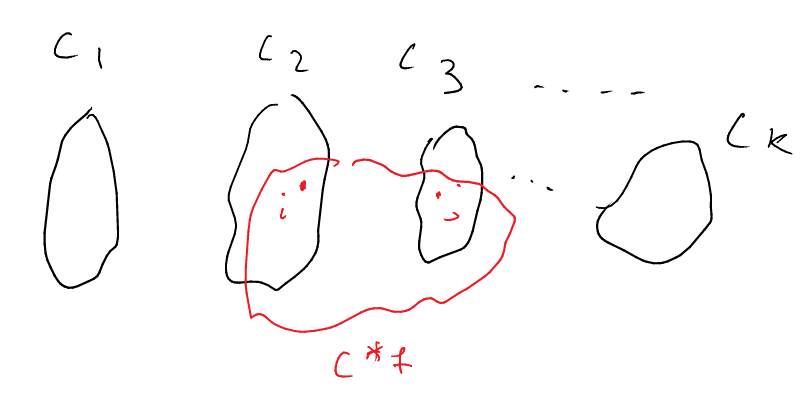 C1 C2 C3 ----- Ck
...
i j
C*f